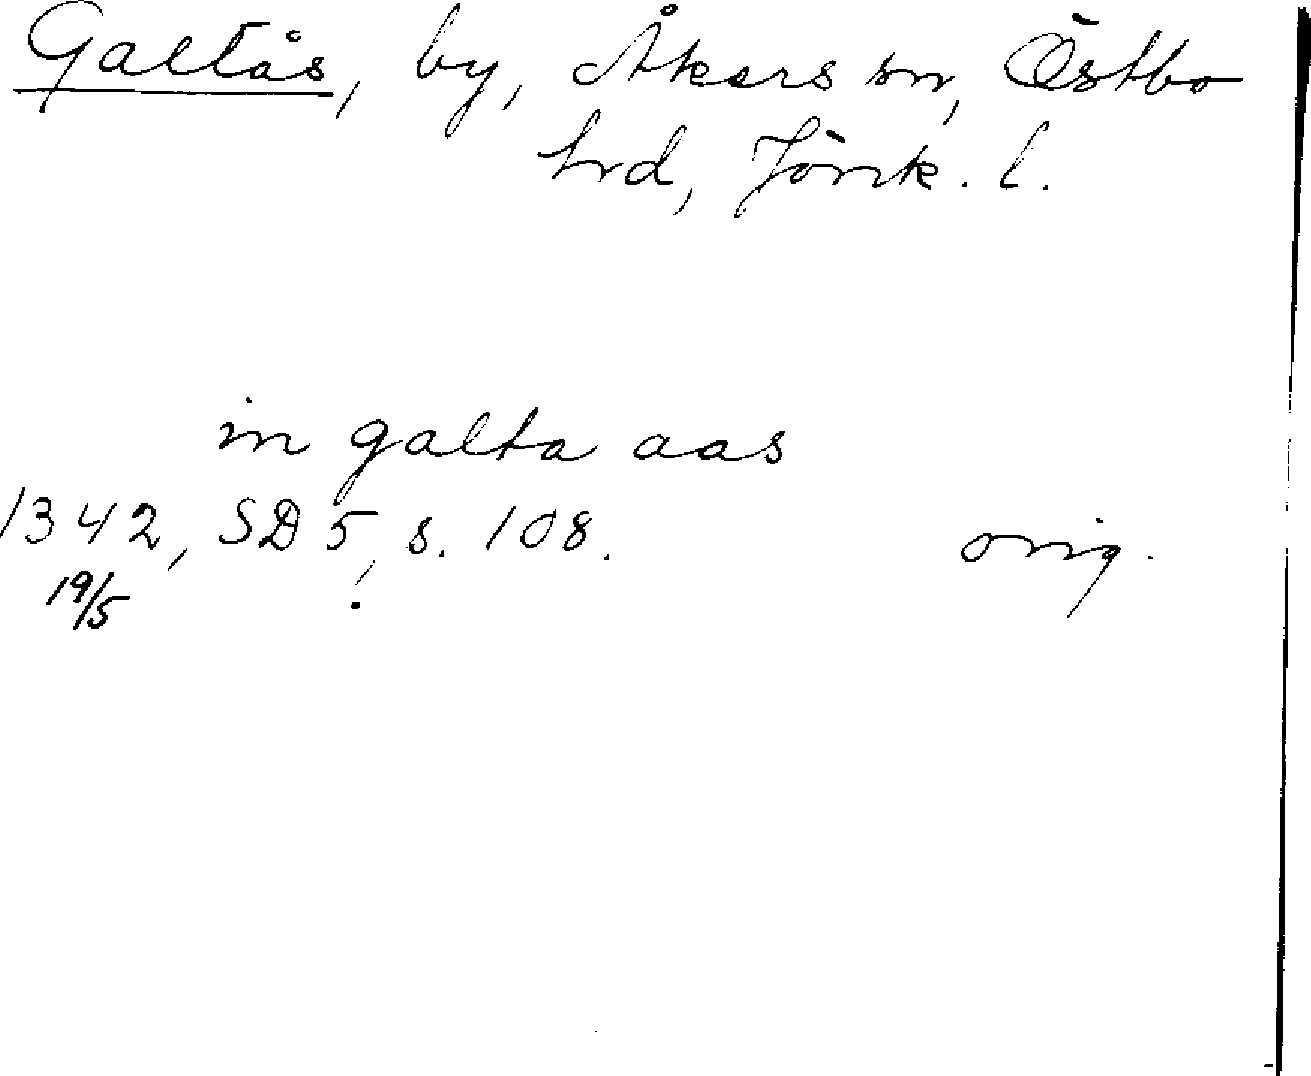 Galtås, by, Åkers sn, Östbo
hrd, Jönk. l.
in galta aas
1342, SD 5, s. 108. orig.
19/5